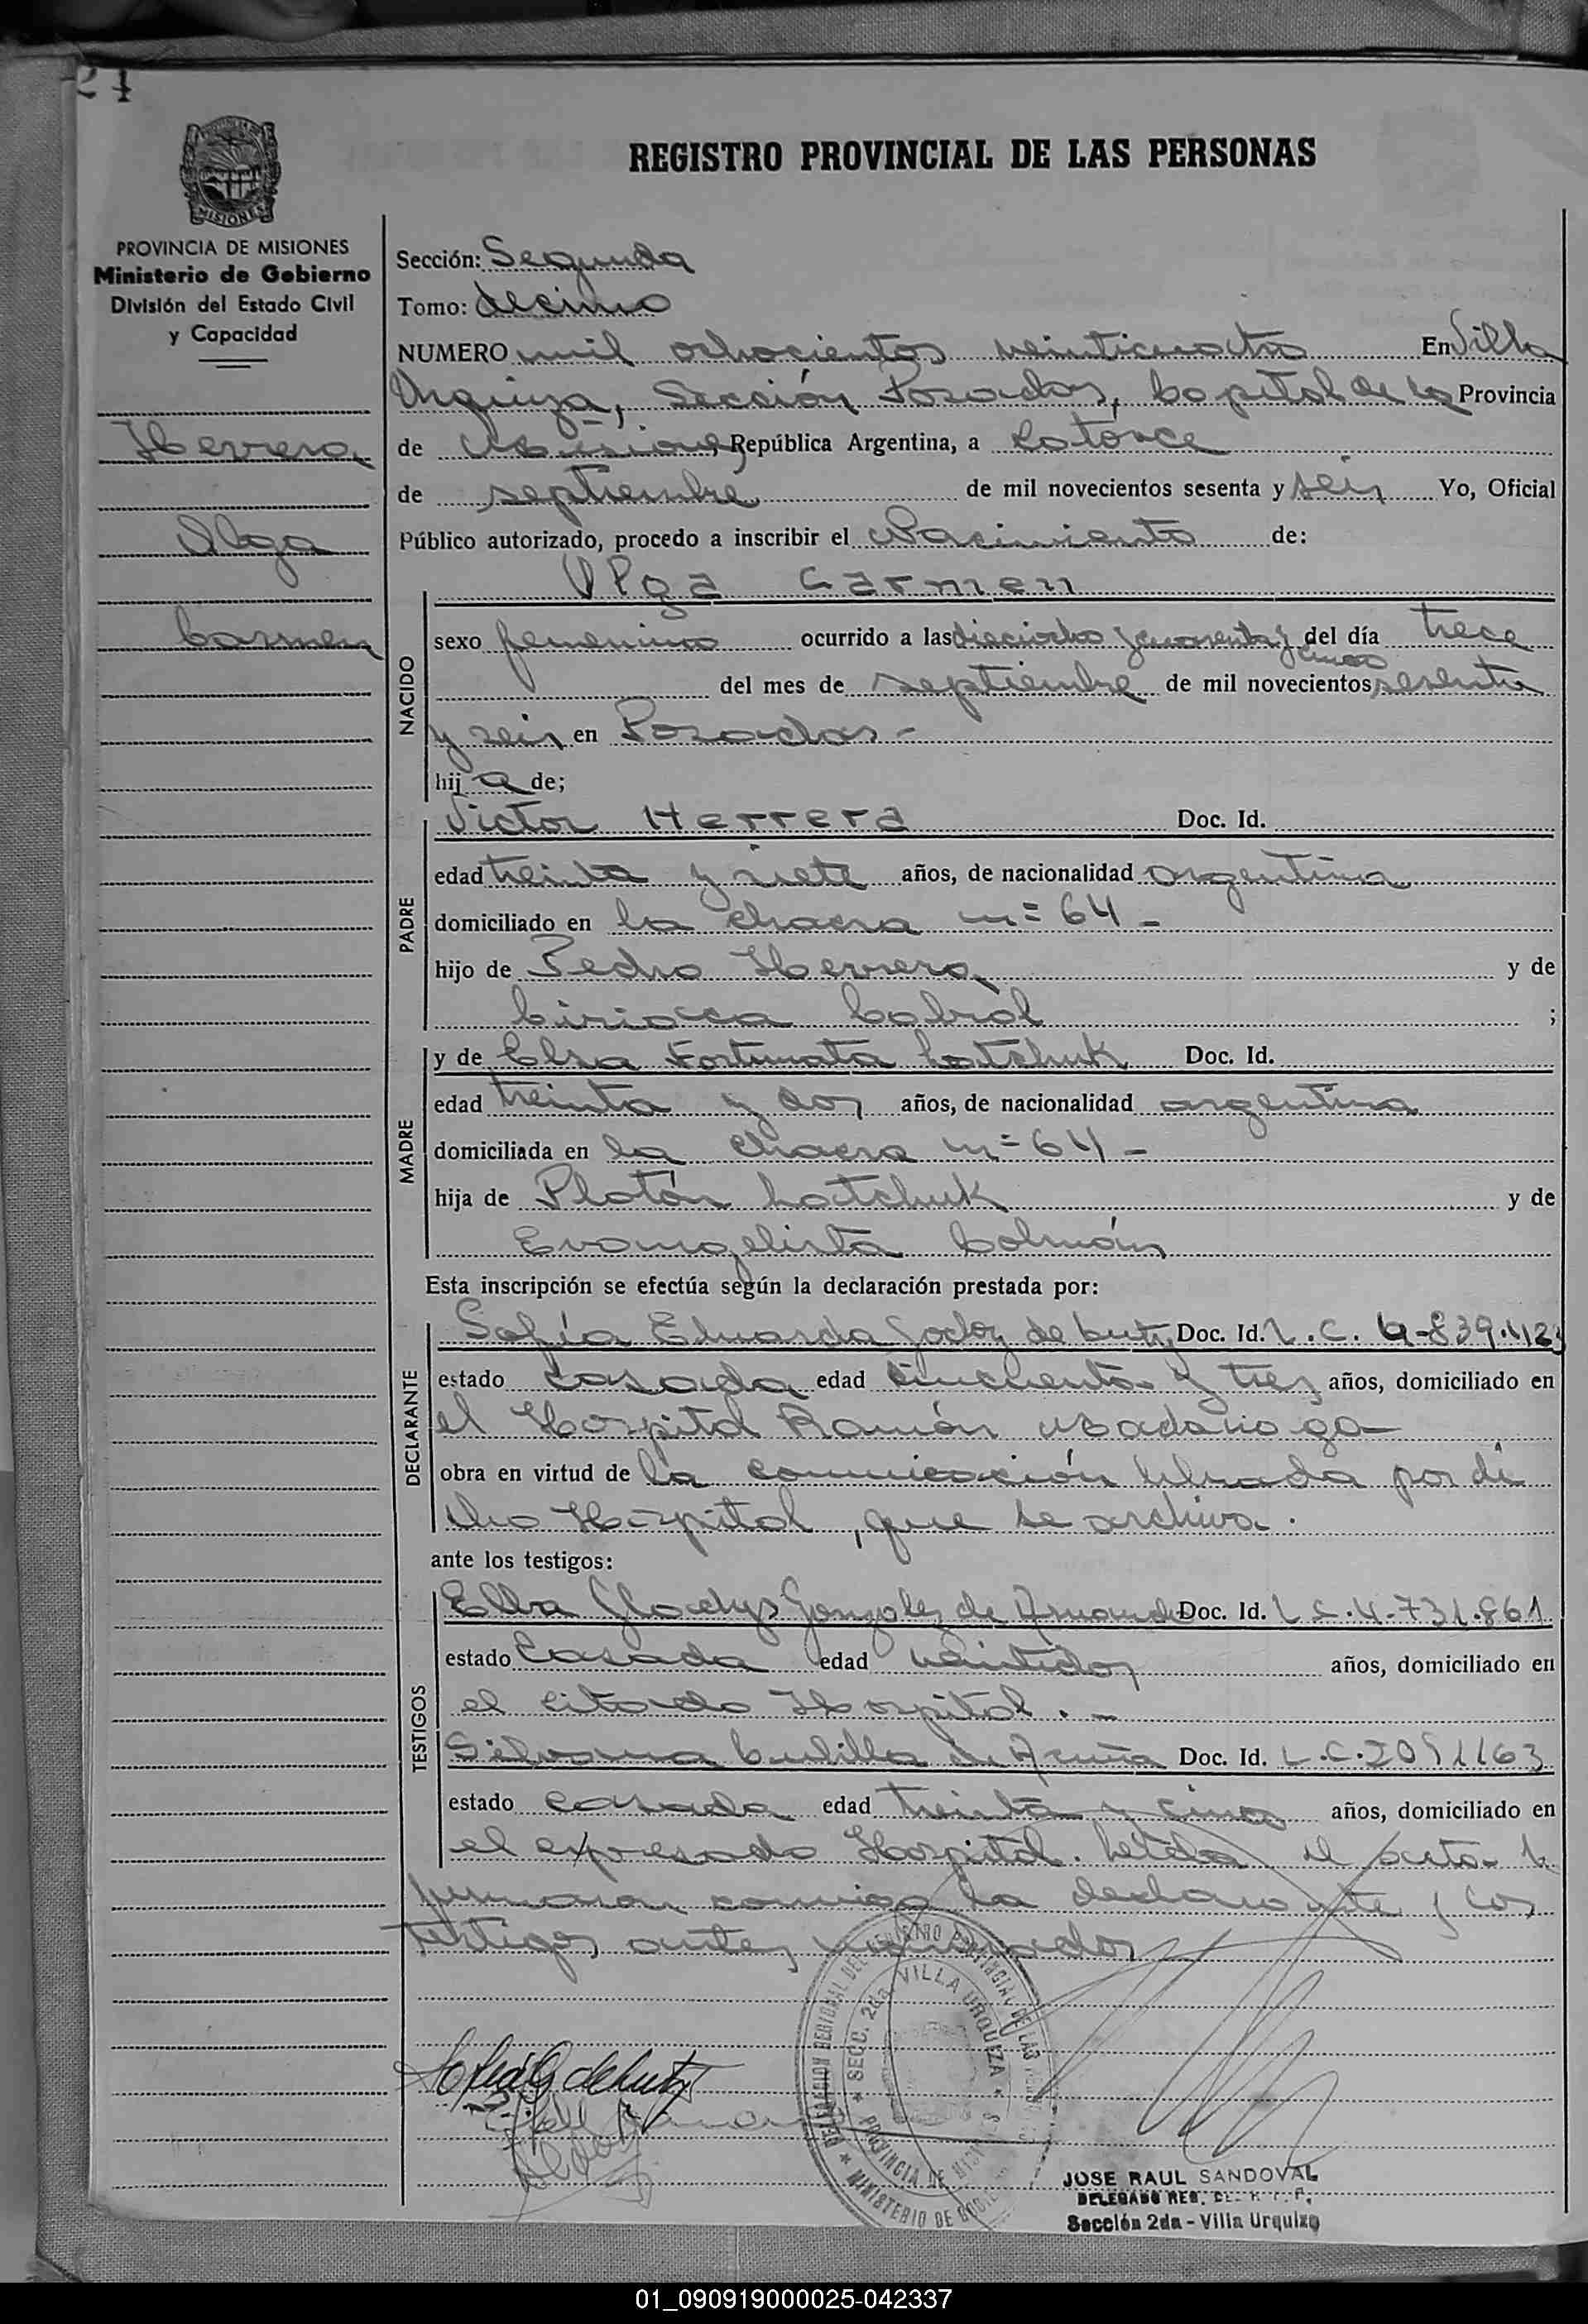 24
REGISTRO PROVINCIAL DE LAS PERSONAS
MISIONES
PROVINCIA DE MISIONES
Ministerio de Gobierno
División del Estado Civil
y Capacidad
Herrera
Olga
Carmen
Sección: Segunda
Tomo: decimo
NUMERO mil ochocientos veinticuatro En Villa
Urquiza, Sección Posadas, Capital de la Provincia
de Misiones, República Argentina, a catorce
de septiembre de mil novecientos sesenta y seis Yo, Oficial
Público autorizado, procedo a inscribir el Nacimiento de:
Olga Carmen
NACIDO
sexo femenino ocurrido a las dieciocho y cuarenta y cinco del día trece
del mes de septiembre de mil novecientos sesenta
y seis en Posadas -
hij a de;
PADRE
Victor Herrera Doc. Id.
edad treinta y siete años, de nacionalidad argentina
domiciliado en la chacra nº 64 -
hijo de Pedro Herrera y de
Ciriaca Cabral ;
MADRE
y de Elsa Fortunata Latchuk Doc. Id.
edad treinta y dos años, de nacionalidad argentina
domiciliada en la chacra nº 64 -
hija de Platón Latchuk y de
Evangelista Colmán
Esta inscripción se efectúa según la declaración prestada por:
DECLARANTE
Sofía Eduarda Godoy de Doc. Id. L.C.
estado casada edad cincuenta y tres años, domiciliado en
el Hospital Ramón Madariaga
obra en virtud de la comunicación librada por di
cho Hospital, que se archiva.
ante los testigos:
TESTIGOS
Elba Gladys Gonzalez de Doc. Id. L C. 4.731.861
estado casada edad veintidos años, domiciliado en
el citado Hospital. -
Silvana de Acuña Doc. Id. L.C. 2091163
estado casada edad treinta y cinco años, domiciliado en
el expresado Hospital. Leída el acta la
firmaron conmigo la declarante y los
testigos antes nombrados
DELEGACION REGIONAL DEL REGISTRO PROVINCIAL DE LAS
SECC. 2da. VILLA URQUIZA
PROVINCIA DE MISIONES
MINISTERIO DE GOBIERNO
JOSE RAUL SANDOVAL
DELEGADO REG.
Sección 2da - Villa Urquiza
01_090919000025-042337